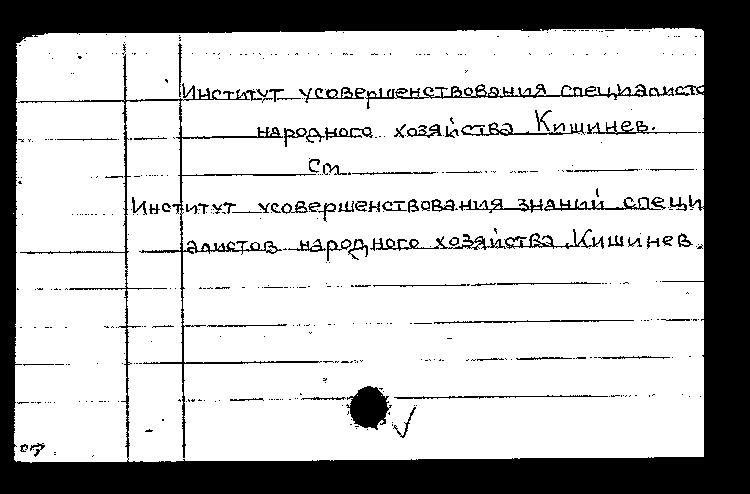 Институт усовершенствования специалисто
народного хозяйства. Кишинев.
см
Институт усовершенствования знаний специ
алистов народного хозяйства. Кишинев.